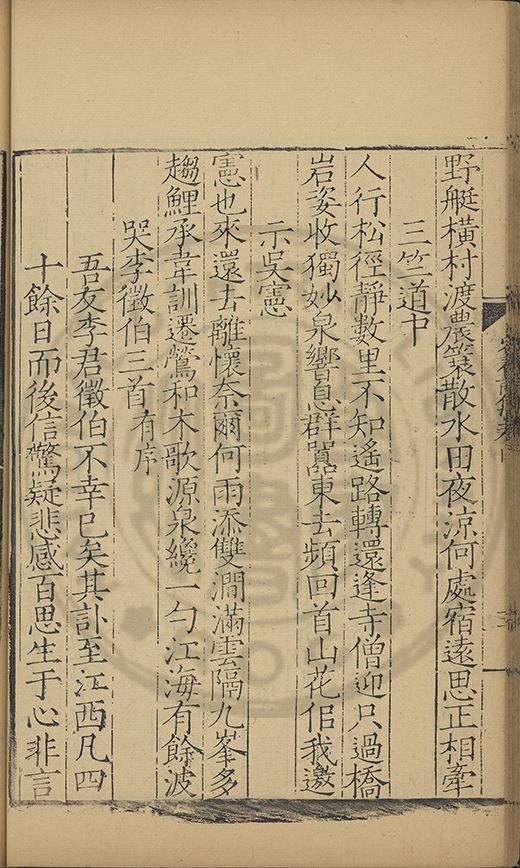 野艇橫村渡農簑散水田夜涼何處宿遠思正相牽
三竺道中
人行松徑靜數里不知遙路轉還逢寺僧迎只過橋
岩姿收獨妙泉響息群囂東去頻回首山花佀我邀
示吳憲
憲也來還去離懷奈爾何雨添雙澗滿雲隔九峯多
趨鯉承韋訓遷鶯和木歌源泉纔一勺江海有餘波
哭李徵伯三首有序
吾友李君徵伯不幸已矣其訃至江西凡四
十餘日而後信驚疑悲感百思生于心非言